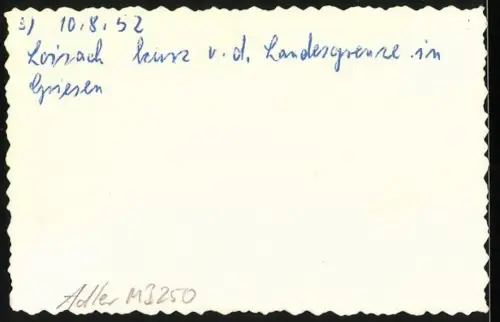 3) 10.8.52
Loisach kurz v. d. Landesgrenze in
Griesen
Adler MB250